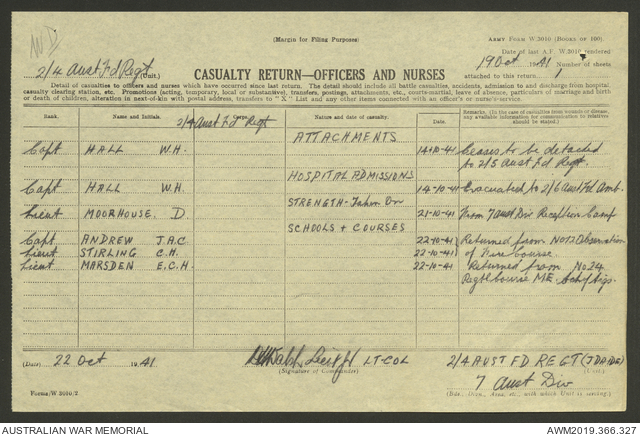 WD
(Margin for Filing Purposes)
ARMY FORM W.3010 (BOOKS OF 100).
Date of last A.F. W.3010 rendered
19 Oct 1941 Number of sheets
attached to this return 1
2/4 Aust Fd Regt (Unit.)
CASUALTY RETURN—OFFICERS AND NURSES
Detail of casualties to officers and nurses which have occurred since last return. The detail should include all battle casualties, accidents, admission to and discharge from hospital,
casualty clearing station, etc. Promotions (acting, temporary, local or substantive), transfers, postings, attachments, etc., courts-martial, leave of absence, particulars of marriage and birth
or death of children, alteration in next-of-kin with postal address, transfers to "X" List and any other items connected with an officer's or nurse's service.
Rank. Name and Initials. Corps. Nature and date of casualty. Date. REMARKS. (In the case of casualties from wounds or disease,
any available information for communication to relatives
should be stated.)
2/4 Aust Fd Regt
ATTACHMENTS
Capt HALL W.H. 14-10-41 Ceases to be detached
to 2/5 Aust Fd Regt.
HOSPITAL ADMISSIONS
Capt HALL W.H. 14-10-41 Evacuated to 2/6 Aust Fd Amb.
STRENGTH - Taken On
Lieut MOORHOUSE. D. 21-10-41 From 7 Aust Div Reception Camp
SCHOOLS + COURSES
Capt. ANDREW J.A.C. 22-10-41 Returned from No 12 Observation
Lieut STIRLING C.H. 22-10-41 of Fire Course.
Lieut MARSDEN E.C.H. 22-10-41 Returned from No 24
Regtl Course ME
(Date) 22 Oct 1941 LT-COL 2/4 AUST FD REGT
(Signature of Commander) (Unit.)
7 Aust Div
(Bde., Divn., Area, etc., with which Unit is serving.)
Forms/W.3010/2
AUSTRALIAN WAR MEMORIAL AWM2019.366.327